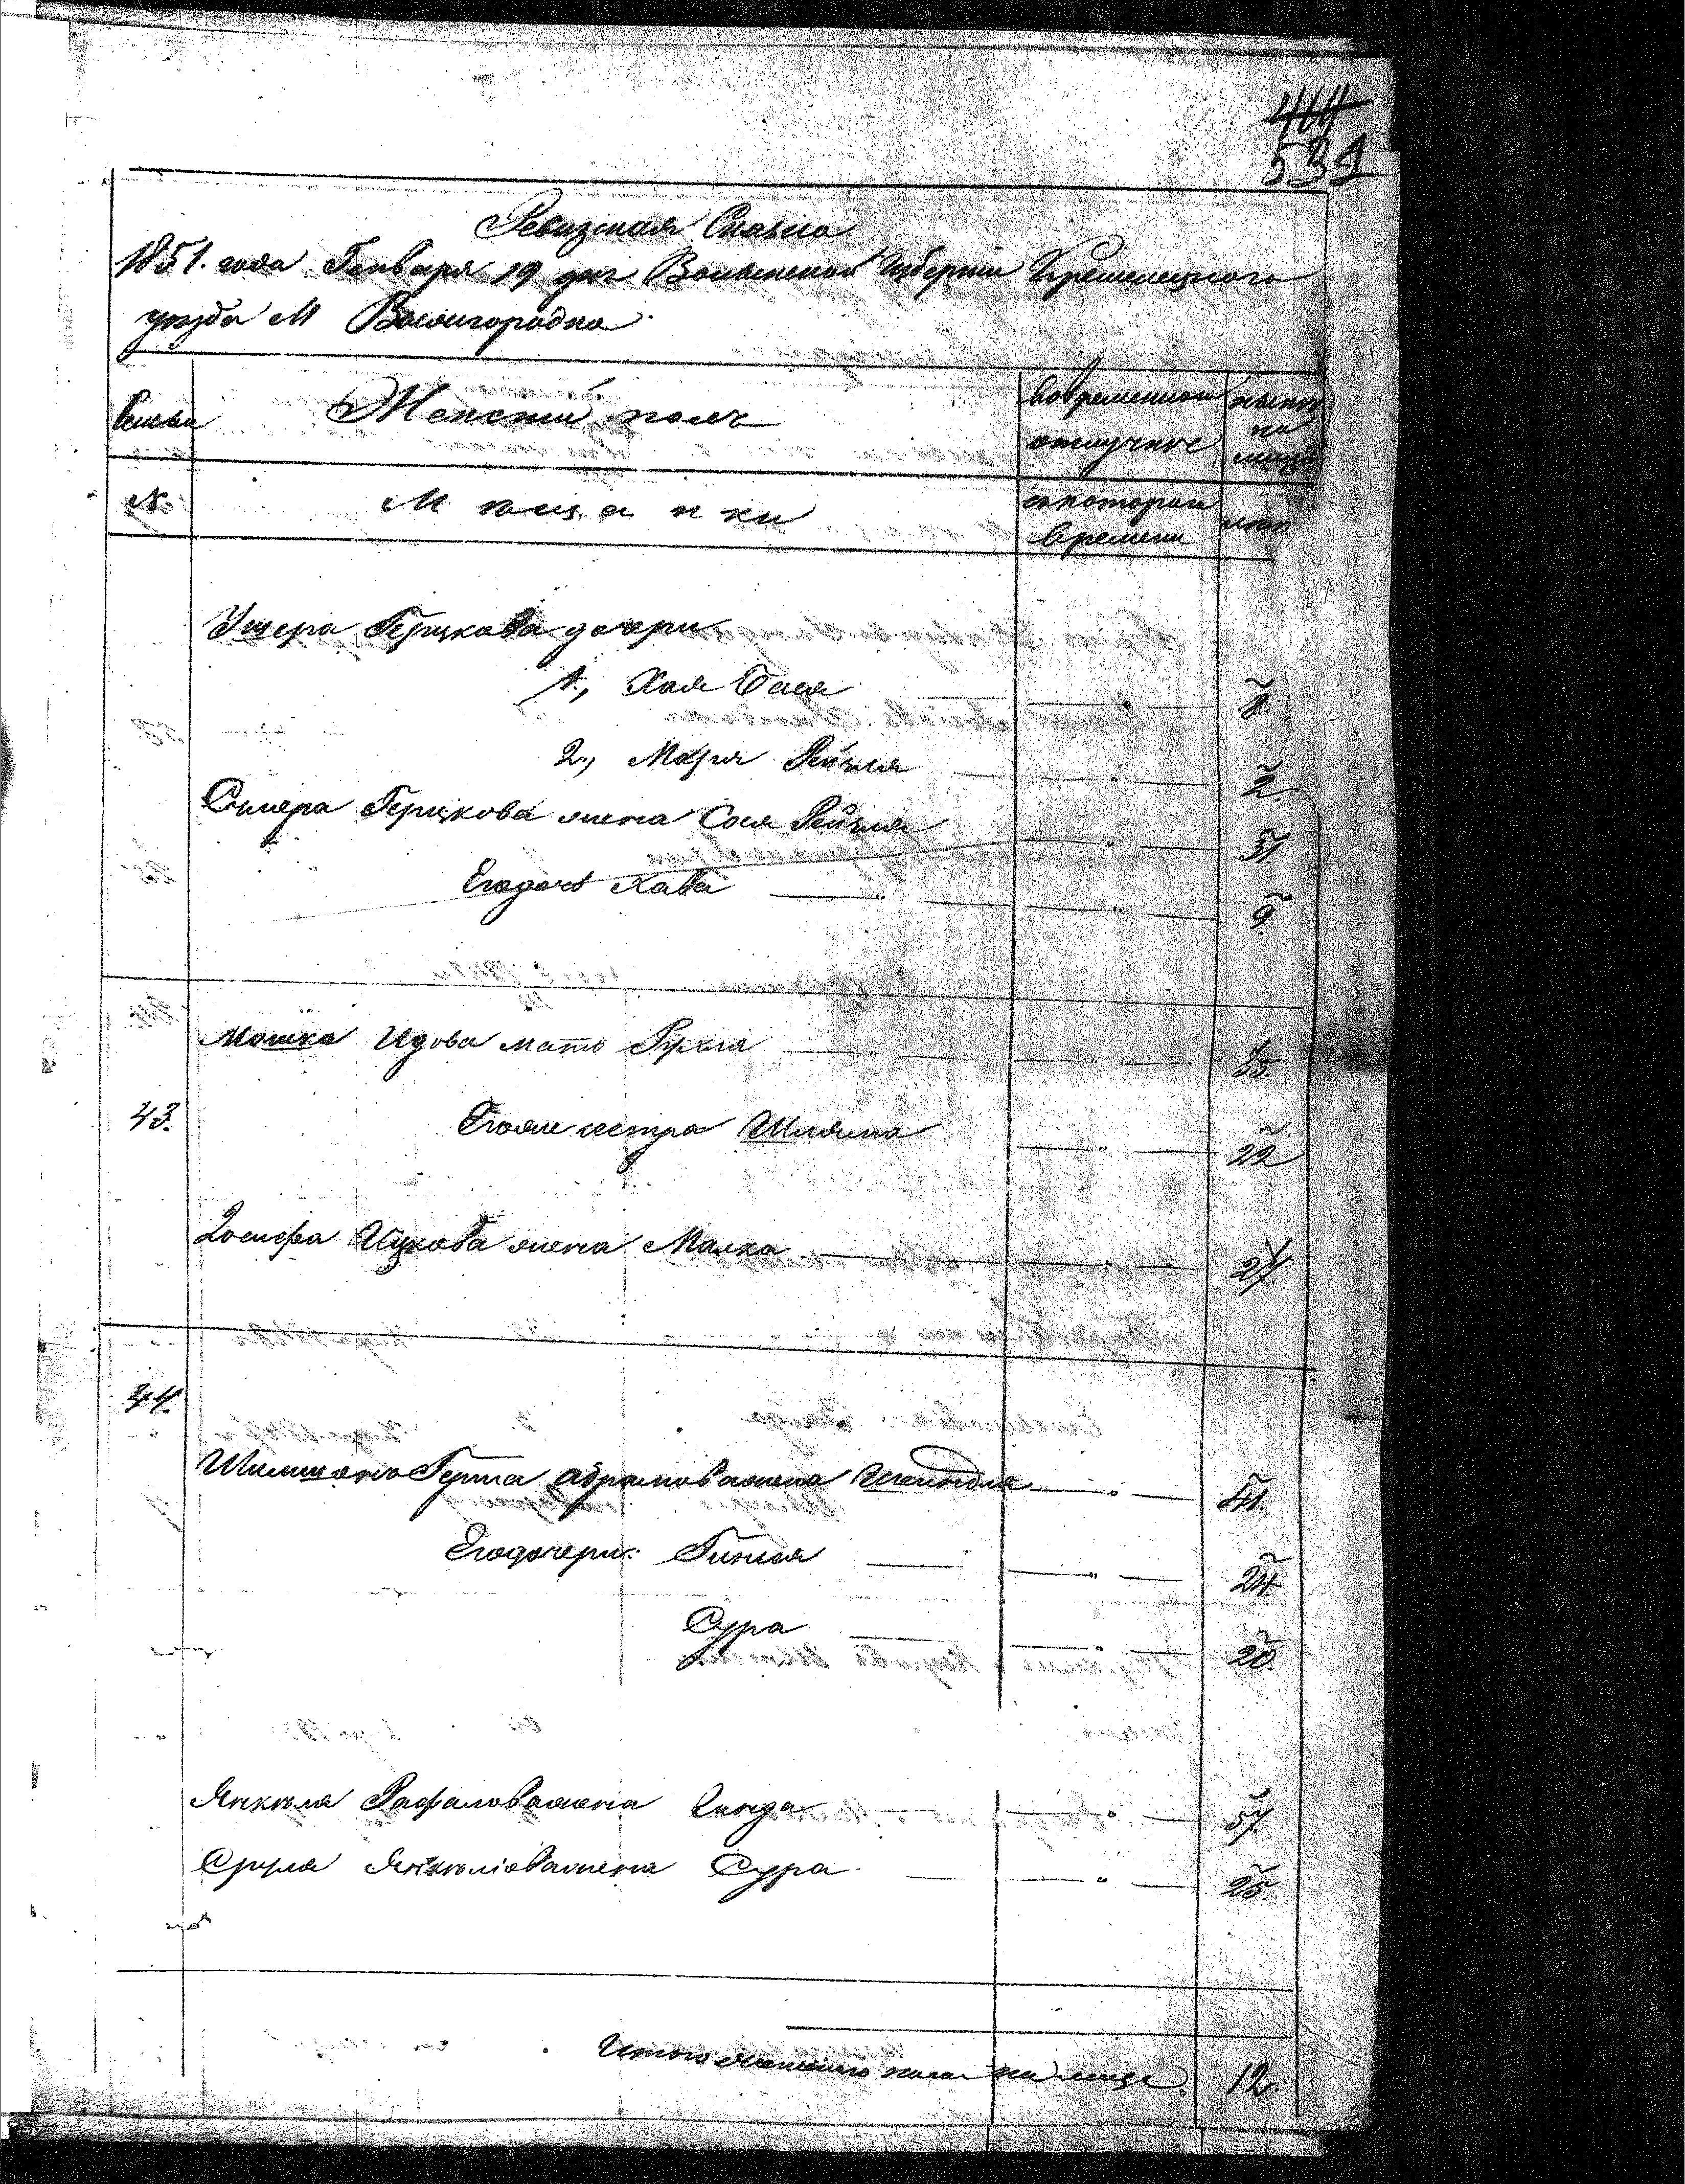 464
539
Ревизская Сказка
1851. года Генваря 19 дня Волынской Губернии Кременецкого
уезда М Вышгородка
Семьи
Женский полъ
вовременной
отлучке
ныне
на
лицо
№
М ѣ щ а н к и
скоторого
времени
лет
Ушера Герцкова дочери
1, Хая Бася " 8.
2, Марья Рейзля " 2.
Герцкова жена Сося Рейзля " 31
Егодочь Хава " 9.
Мошка Идова мать Рухля " 55.
43.
Егоже сестра " 22
Иосифа Ицкова жена Малка " 27
44.
Шимшонъ Герша Абрамова жена Шейндля " 41.
Егодочери: Гинся " 24
Сура " 20.
Янкеля Рафаловажена " 57.
Сруля Янкелiоважена Сура " 25.
Итого женского пола на лице. 12.